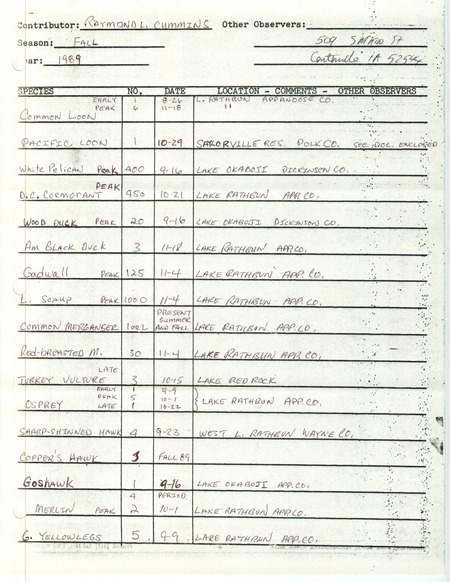 Contributor: RAYMOND L. CUMMINS Other Observers:
Season: FALL 509 St
ear: 1989 Centerville IA 52544
SPECIES NO. DATE LOCATION - COMMENTS - OTHER OBSERVERS
EARLY 1 8-26 L. RATHBUN APPANOOSE CO.
Common Loon PEAK 6 11-18 "
PACIFIC LOON 1 10-29 SAYLORVILLE RES. POLK CO. SEE DOC. ENCLOSED
White Pelican PEAK 400 9-16 LAKE OKABOJI DICKINSON CO.
D.C. CORMORANT PEAK 450 10-21 LAKE RATHBUN APP. CO.
WOOD DUCK PEAK 20 9-16 LAKE OKABOJI DICKINSON CO.
Am Black Duck 3 11-18 LAKE RATHBUN APP.CO.
Gadwall PEAK 125 11-4 LAKE RATHBUN APP. CO.
L. Scaup PEAK 1000 11-4 LAKE RATHBUN APP. CO.
PRESENT SUMMER
COMMON MERGANSER 1or2 AND FALL LAKE RATHBUN APP. CO.
Red-breasted M. 30 11-4 LAKE RATHBUN APP. CO.
LATE
TURKEY VULTURE 3 10-15 LAKE RED ROCK
EARLY 1 9-9
OSPREY PEAK 5 10-1 LAKE RATHBUN APP. CO.
LATE 1 10-22
SHARP-SHINNED HAWK 4 9-23 WEST L. RATHBUN WAYNE CO.
COPPER'S HAWK 3 FALL 89
GOSHAWK 1 9-16 LAKE OKABOJI APP.CO.
4 PERIOD
MERLIN PEAK 2 10-1 LAKE RATHBUN APP.CO.
G. YELLOWLEGS 5 9-9 LAKE RATHBUN APP.CO.